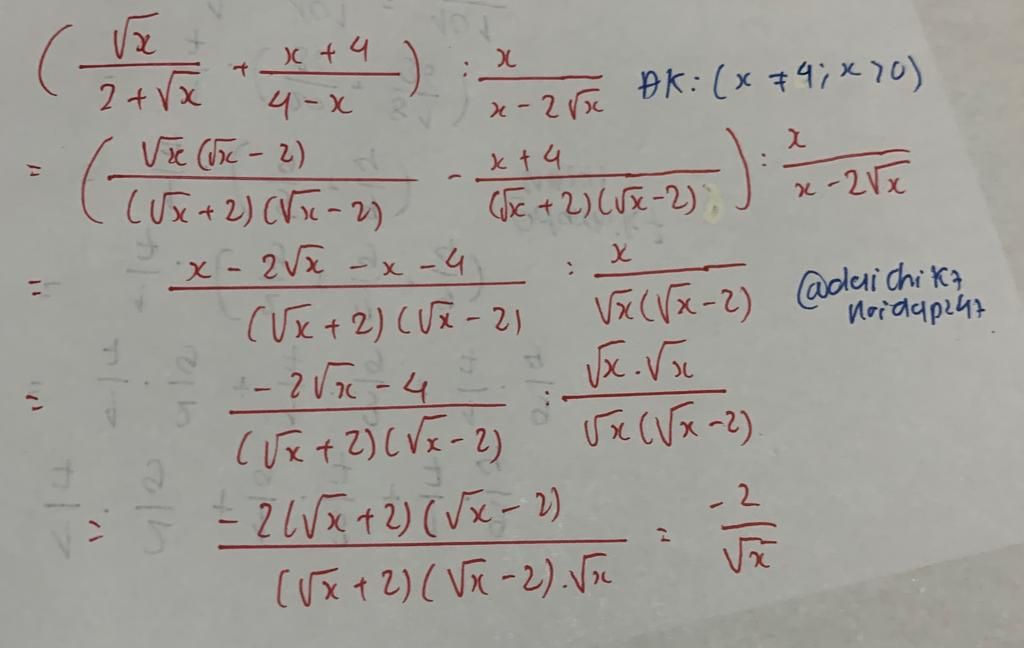 (√x/(2+√x) + (x+4)/(4-x)) : x/(x-2√x) ĐK: (x ≠ 4; x > 0)
= (√x(√x-2)/((√x+2)(√x-2)) - (x+4)/((√x+2)(√x-2))) : x/(x-2√x)
= (x-2√x-x-4)/((√x+2)(√x-2)) : x/(√x(√x-2))
= (-2√x-4)/((√x+2)(√x-2)) : (√x.√x)/(√x(√x-2))
= (-2(√x+2)(√x-2))/((√x+2)(√x-2).√x) = -2/√x